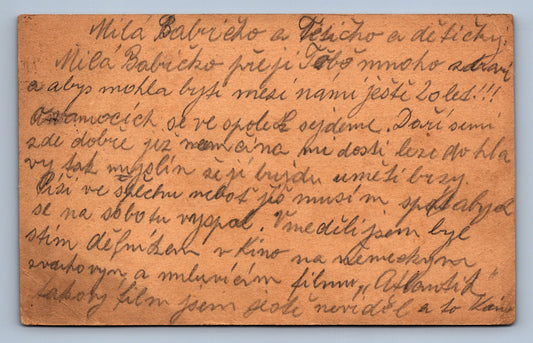 Milá Babičko a Tetičko a dětičky.
Milá Babičko přeji Tobě mnoho zdraví
a abys mohla byti mezi nami ještě 20 let!!!
a o vanocich se ve spolek sejdeme. Daří se mi
zde dobře již němčina mi dosti leze do hla
vy tak myslím že ji budu uměti brzy.
Piši ve spěchu neboť již musím spat abych
se na sobotu vyspal. V neděli jsem byl
s tím dělníkem v Kino na německym
zvukovym a mluvicim filmu „Atlantik"
takovy film jsem ještě neviděl a to